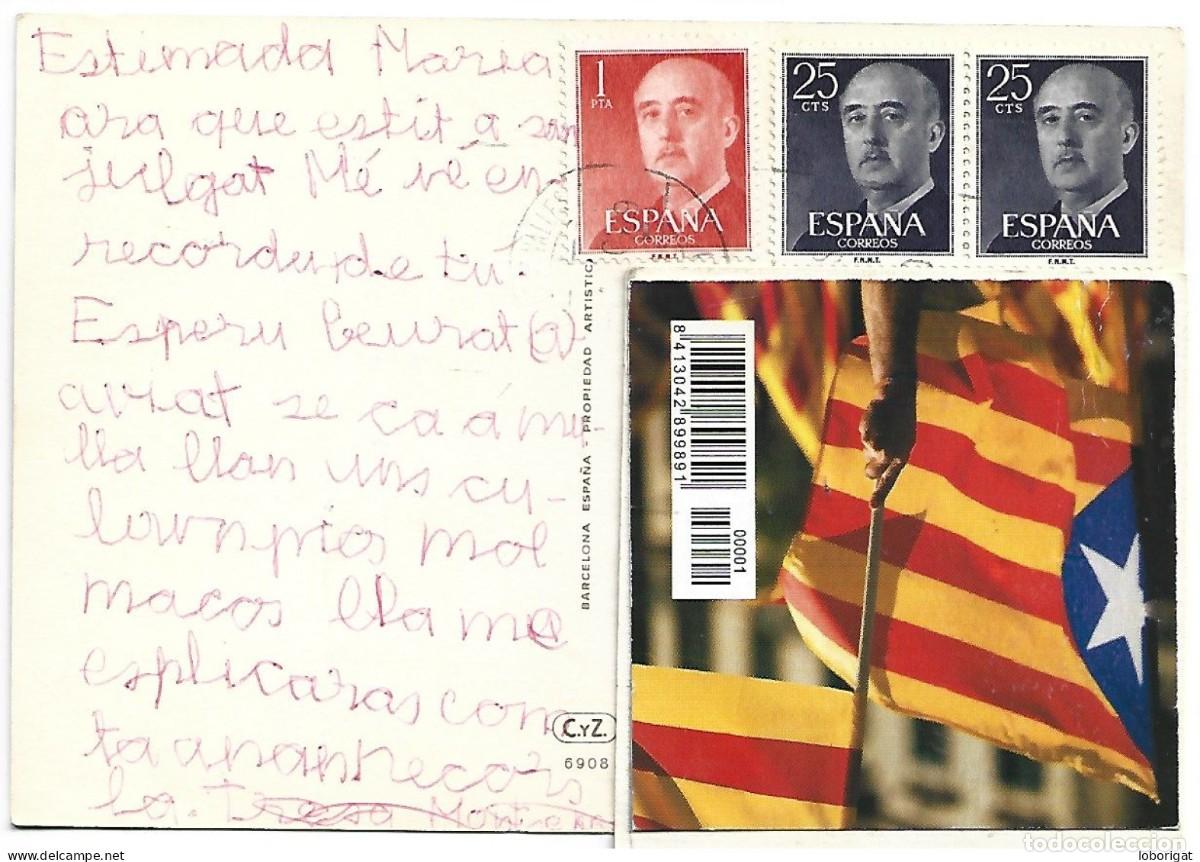 Estimada Maria
ara que estit a san
julgat Mé ve en
recordu de tu.
Esperu beurat (a)
aviat se ca á me-
lla llan uns cu-
lounpios mol
macos lla me
esplicaras com
ta anan recors
la. Tresa
1
PTA
ESPAÑA
CORREOS
F.N.M.T.
25
CTS
ESPAÑA
CORREOS
F.N.M.T.
25
CTS
ESPAÑA
CORREOS
F.N.M.T.
BARCELONA ESPAÑA - PROPIEDAD ARTISTIC
C.YZ.
6908
8 413042 899891
00001
todocoleccion
loborigat